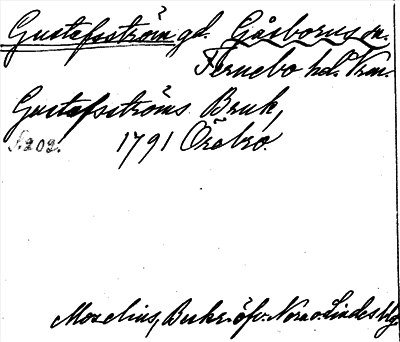 Gustafsström gd. Gåsborns sn.
Fernebo hd. Vrm.
Gustafsströms Bruk,
S. 202. 1791 Örebro.
Moxelius, Beskr. öfv. Nora o. Lindes blg.